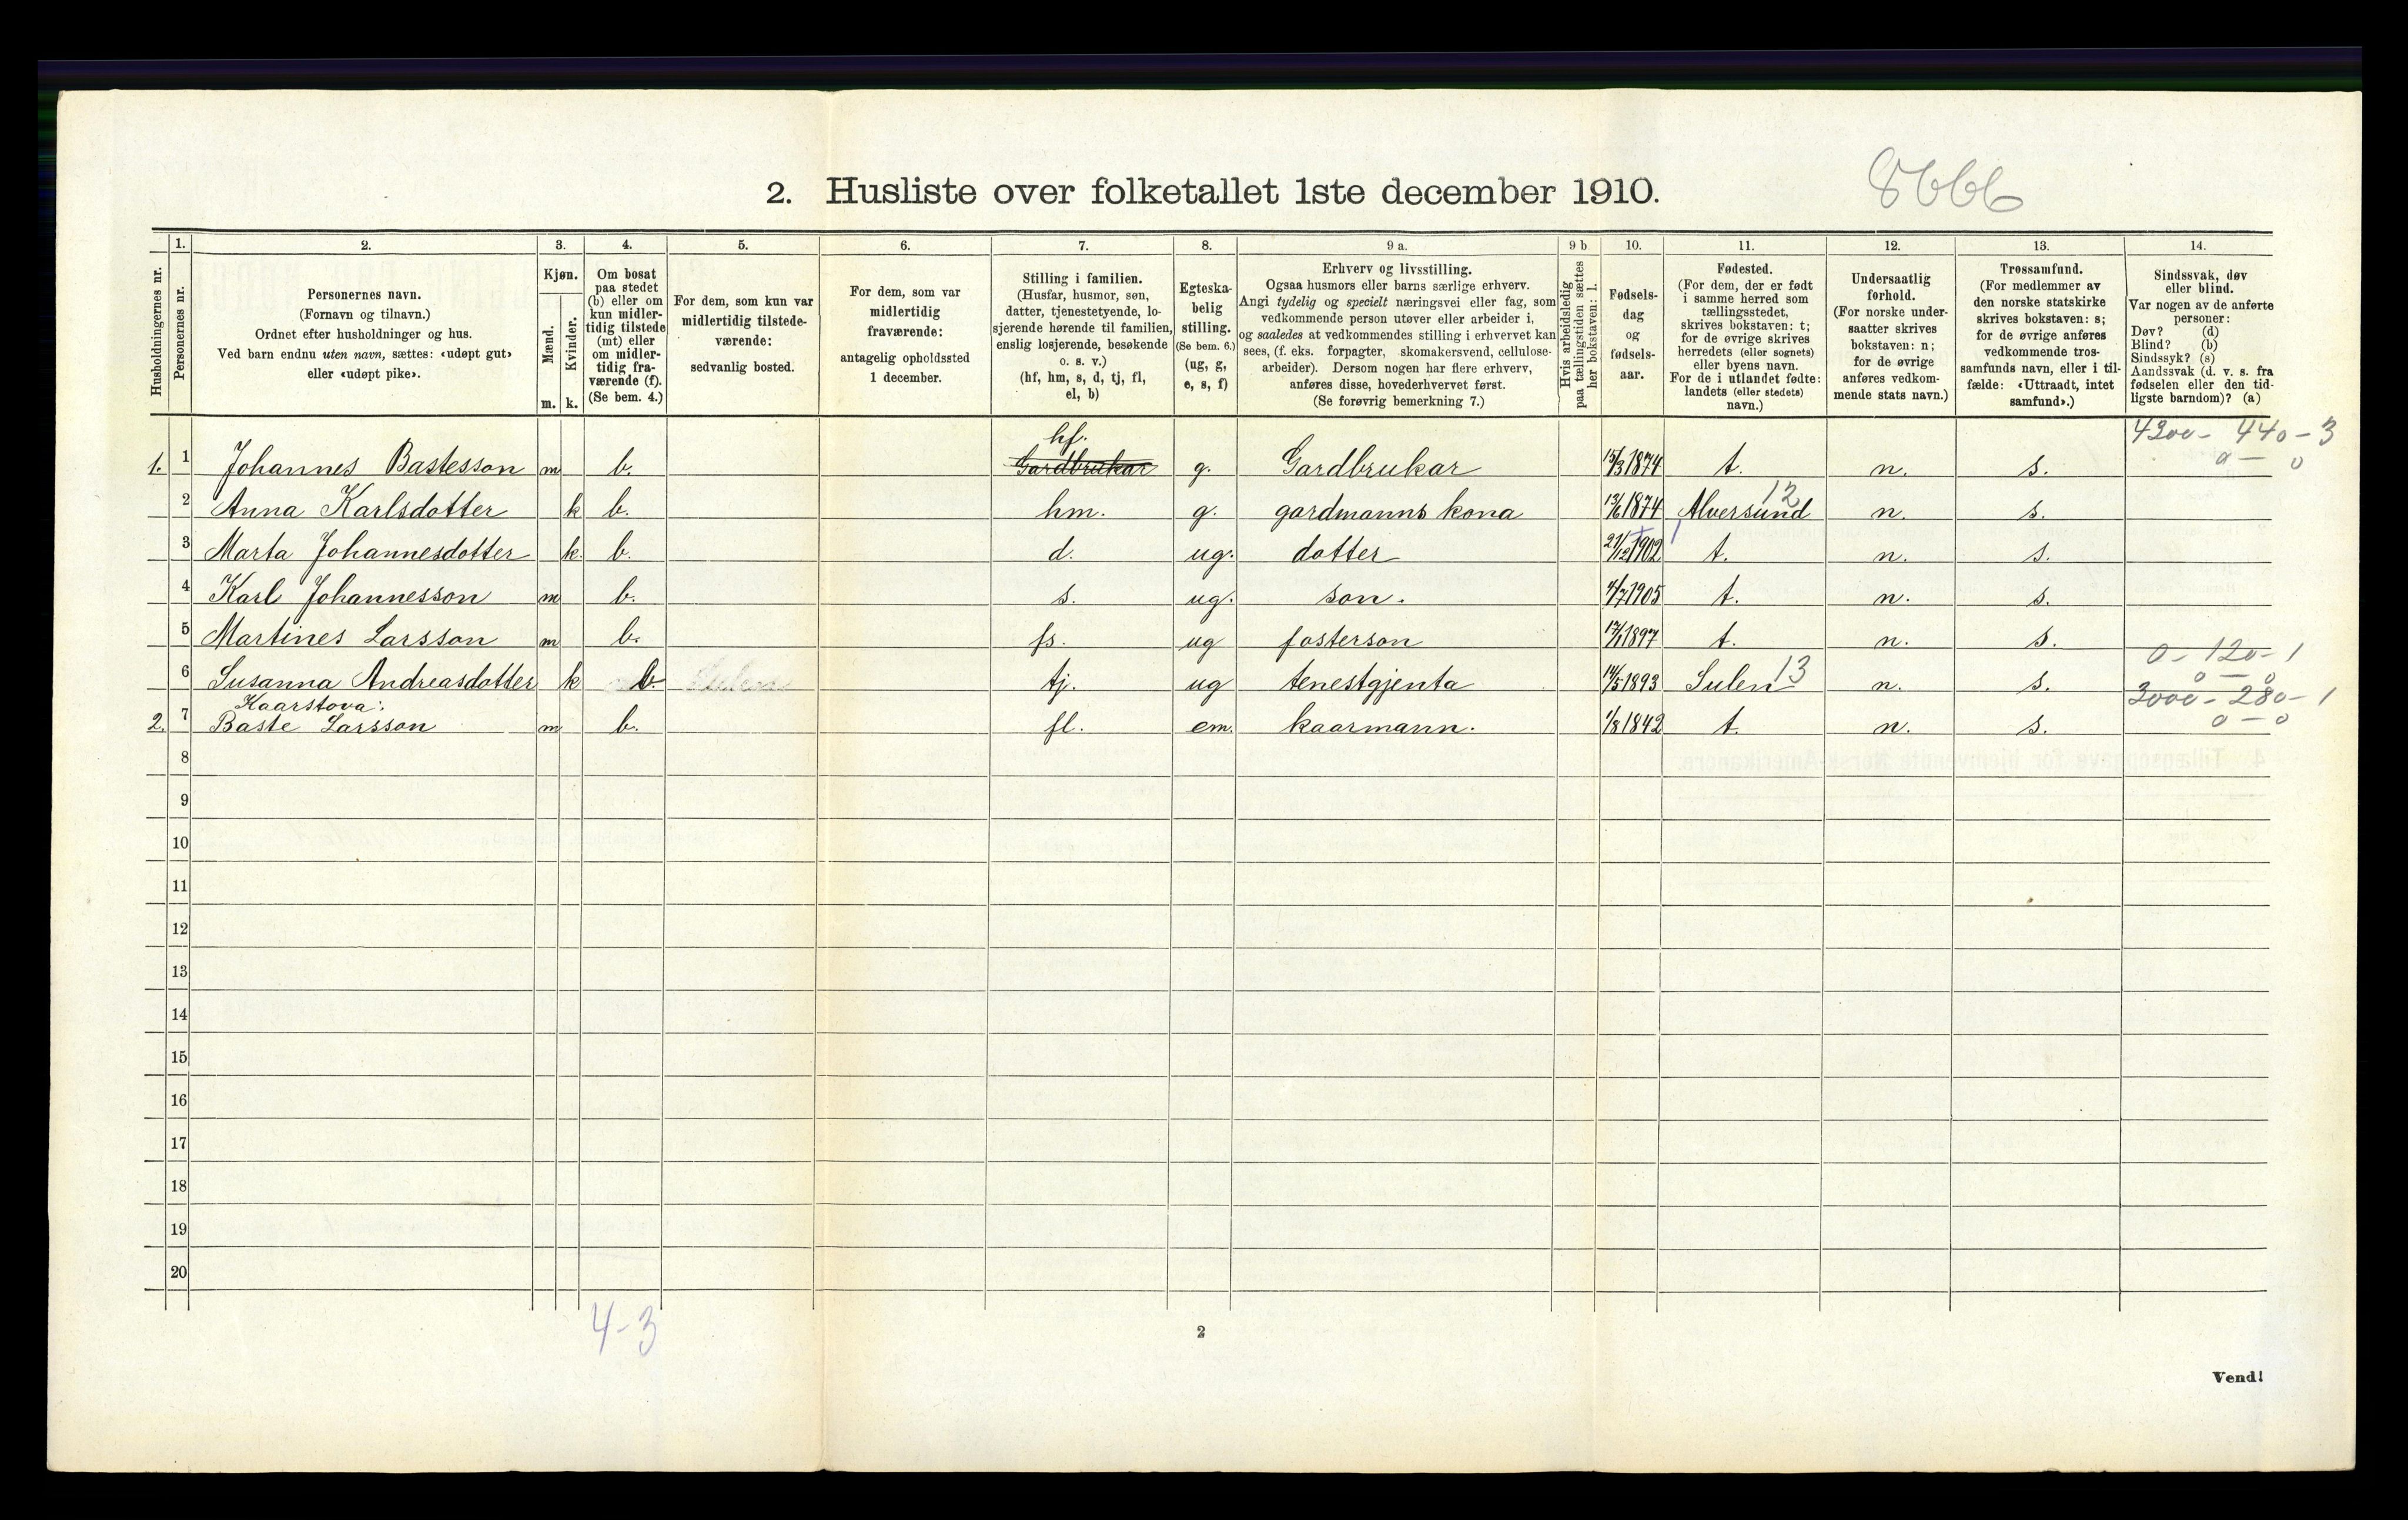 2. Husliste over folketallet 1ste december 1910.
8666
Husholdningernes nr.
1.
Personernes nr.
2.
Personernes navn.
(Fornavn og tilnavn.)
Ordnet efter husholdninger og hus.
Ved barn endnu uten navn, sættes: «udøpt gut»
eller «udøpt pike».
3.
Kjøn.
Mænd.
Kvinder.
m. k.
4.
Om bosat
paa stedet
(b) eller om
kun midler-
tidig tilstede
(mt) eller
om midler-
tidig fra-
værende (f).
(Se bem. 4.)
5.
For dem, som kun var
midlertidig tilstede-
værende:
sedvanlig bosted.
6.
For dem, som var
midlertidig
fraværende:
antagelig opholdssted
1 december.
7.
Stilling i familien.
(Husfar, husmor, søn,
datter, tjenestetyende, lo-
sjerende hørende til familien,
enslig losjerende, besøkende
o. s. v.)
(hf, hm, s, d, tj, fl,
el, b)
8.
Egteska-
belig
stilling.
(Se bem. 6.)
(ug, g,
e, s, f)
9 a.
Erhverv og livsstilling.
Ogsaa husmors eller barns særlige erhverv.
Angi tydelig og specielt næringsvei eller fag, som
vedkommende person utøver eller arbeider i,
og saaledes at vedkommendes stilling i erhvervet kan
sees, (f. eks. forpagter, skomakersvend, cellulose-
arbeider). Dersom nogen har flere erhverv,
anføres disse, hovederhvervet først.
(Se forøvrig bemerkning 7.)
9 b.
Hvis arbeidsledig
paa tællingstiden sættes
her bokstaven: l.
10.
Fødsels-
dag
og
fødsels-
aar.
11.
Fødested.
(For dem, der er født
i samme herred som
tællingsstedet,
skrives bokstaven: t;
for de øvrige skrives
herredets (eller sognets)
eller byens navn.
For de i utlandet fødte:
landets (eller stedets)
navn.)
12.
Undersaatlig
forhold.
(For norske under-
saatter skrives
bokstaven: n;
for de øvrige
anføres vedkom-
mende stats navn.)
13.
Trossamfund.
(For medlemmer av
den norske statskirke
skrives bokstaven: s;
for de øvrige anføres
vedkommende tros-
samfunds navn, eller i til-
fælde: «Uttraadt, intet
samfund».)
14.
Sindssvak, døv
eller blind.
Var nogen av de anførte
personer:
Døv? (d)
Blind? (b)
Sindssyk? (s)
Aandssvak (d. v. s. fra
fødselen eller den tid-
ligste barndom)? (a)
4200 - 440 - 3
0 — 0
hf.
1. 1 Johannes Bastesson m b. Gardbrukar g. Gardbrukar 15/3 1874 t. n. s.
12
2 Anna Karlsdotter k b. hm. g. gardmanns kona 13/6 1874 Alversund n. s.
3 Marta Johannesdotter k. b. d. ug. dotter 21/12 1902 t. n. s.
4 Karl Johannesson m b. s. ug. son. 4/7 1905 t. n. s.
5 Martines Larsson m b. fs. ug fosterson 17/1 1897 t. n. s.
0 - 120 - 1
0 — 0
6 Susanna Andreasdotter k b. tj. ug tenestgjenta 14/5 1893 Sulen 13 n. s.
3000 - 280 - 1
0 — 0
Kaarstova:
2. 7 Baste Larsson m b. fl. em. kaarmann. 1/8 1842 t. n. s.
8
9
10
11
12
13
14
15
16
17
18
19
20
4-3
2
Vend!